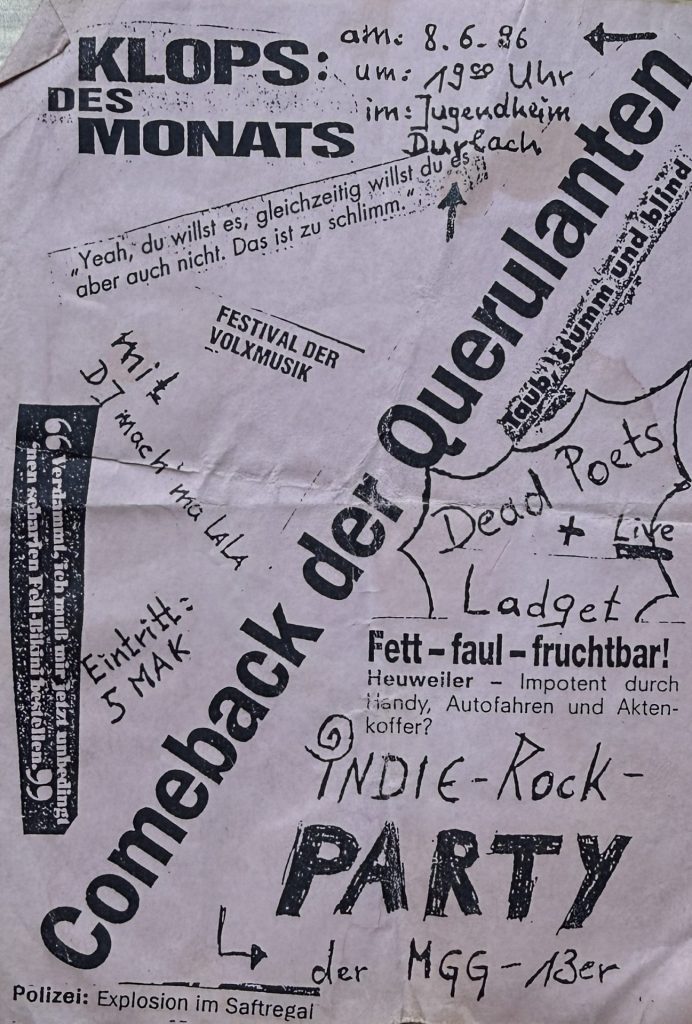 KLOPS:
DES
MONATS
am: 8.6-96
um: 19⁰⁰ Uhr
im: Jugendheim
Durlach
„Yeah, du willst es, gleichzeitig willst du es
aber auch nicht. Das ist zu schlimm.“
FESTIVAL DER
VOLXMUSIK
mit
DJ mach' ma LaLa
Comeback der Querulanten
Taub, stumm und blind
Dead Poets
+ Live
Ladget
“Verdammt, ich muß mir jetzt unbedingt
nen scharfen Fell-Bikini bestellen.”
Eintritt:
5 MAK
Fett – faul – fruchtbar!
Heuweiler – Impotent durch
Handy, Autofahren und Akten-
koffer?
INDIE-Rock-
PARTY
der MGG-13er
Polizei: Explosion im Saftregal